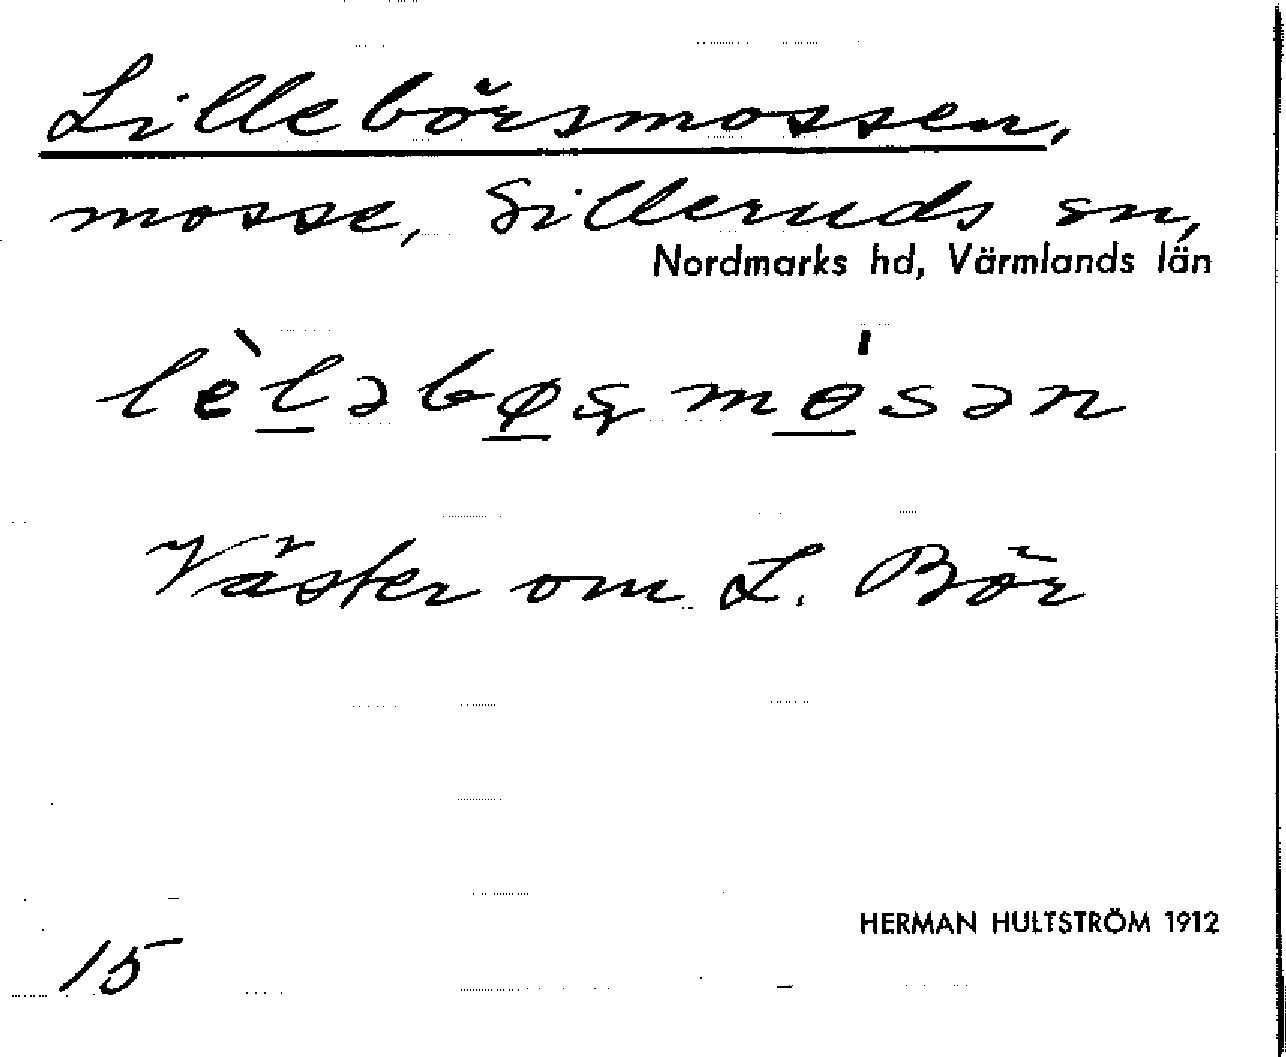 Lillebörsmossen,
mosse, Silleruds sn,
Nordmarks hd, Värmlands län
lèl̲əbø̲ʂmɵ̲́sən
Väster om L. Bör
HERMAN HULTSTRÖM 1912
15